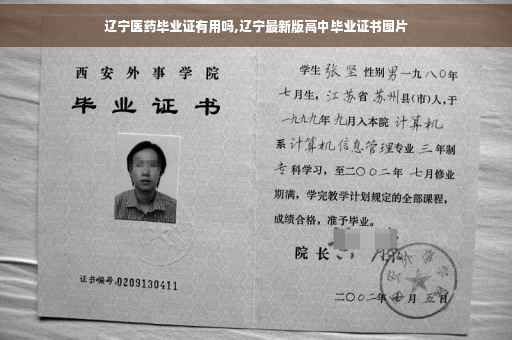 辽宁医药毕业证有用吗,辽宁最新版高中毕业证书图片
西安外事学院
毕业证书
证书编号:0209130411
学生 张坚 性别 男 一九八〇年
七月生, 江苏省 苏州县(市)人,于
一九九九年 九月入本院 计算机
系 计算机信息管理专业 三 年制
专科学习, 至二〇〇二年 七月修业
期满, 学完教学计划规定的全部课程,
成绩合格, 准予毕业。
院长
二〇〇二年 月 五日